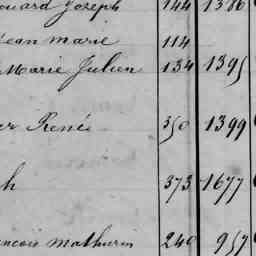 ouard Joseph 144 1386
Jean marie 114
Marie Julien 134 1395
er René 350 1399
h 373 1677
ncois Mathurin 240 957